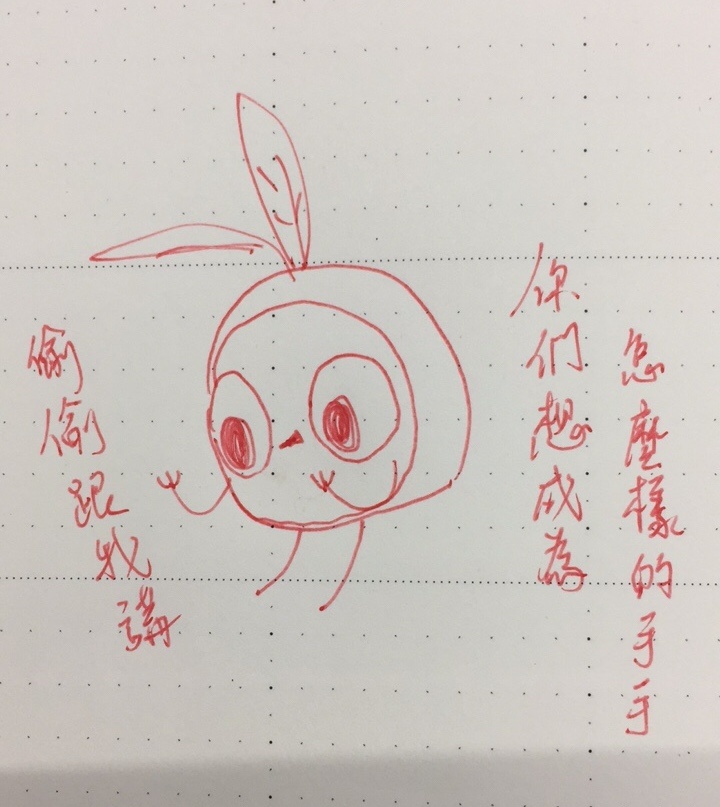 你們想成為
怎麼樣的手手
偷偷跟我講